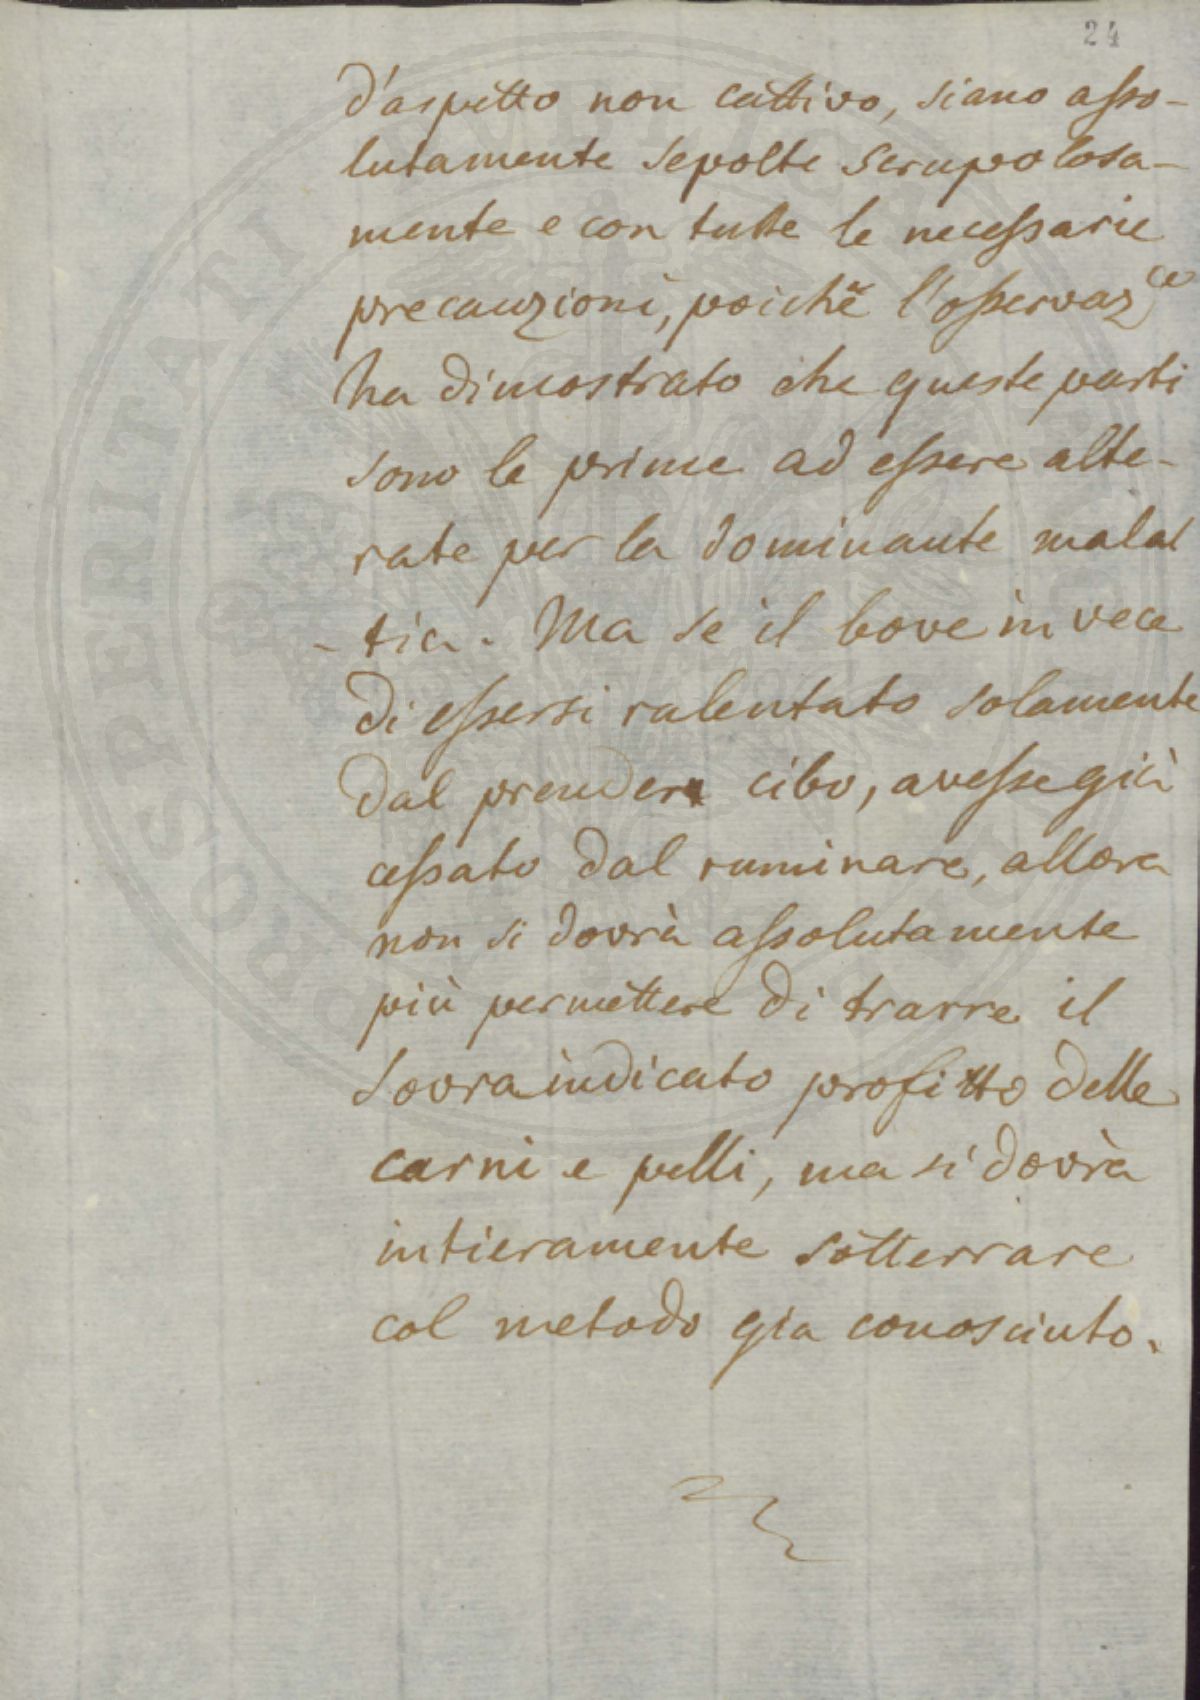 24
d'aspetto non cattivo, siano asso-
lutamente sepolte scrupolosa-
mente e con tutte le necessarie
precauzioni, poichè l'osservaz
ha dimostrato che queste parti
sono le prime ad essere alte-
rate per la dominante malat
-tia. Ma se il bove in vece
di essersi ralentato solamente
dal prender cibo, avesse già
cessato dal ruminare, allora
non si dovrà assolutamente
più permettere di trarre il
sovraindicato profitto delle
carni e pelli, ma si dovrà
intieramente sotterrare
col metodo già conosciuto.